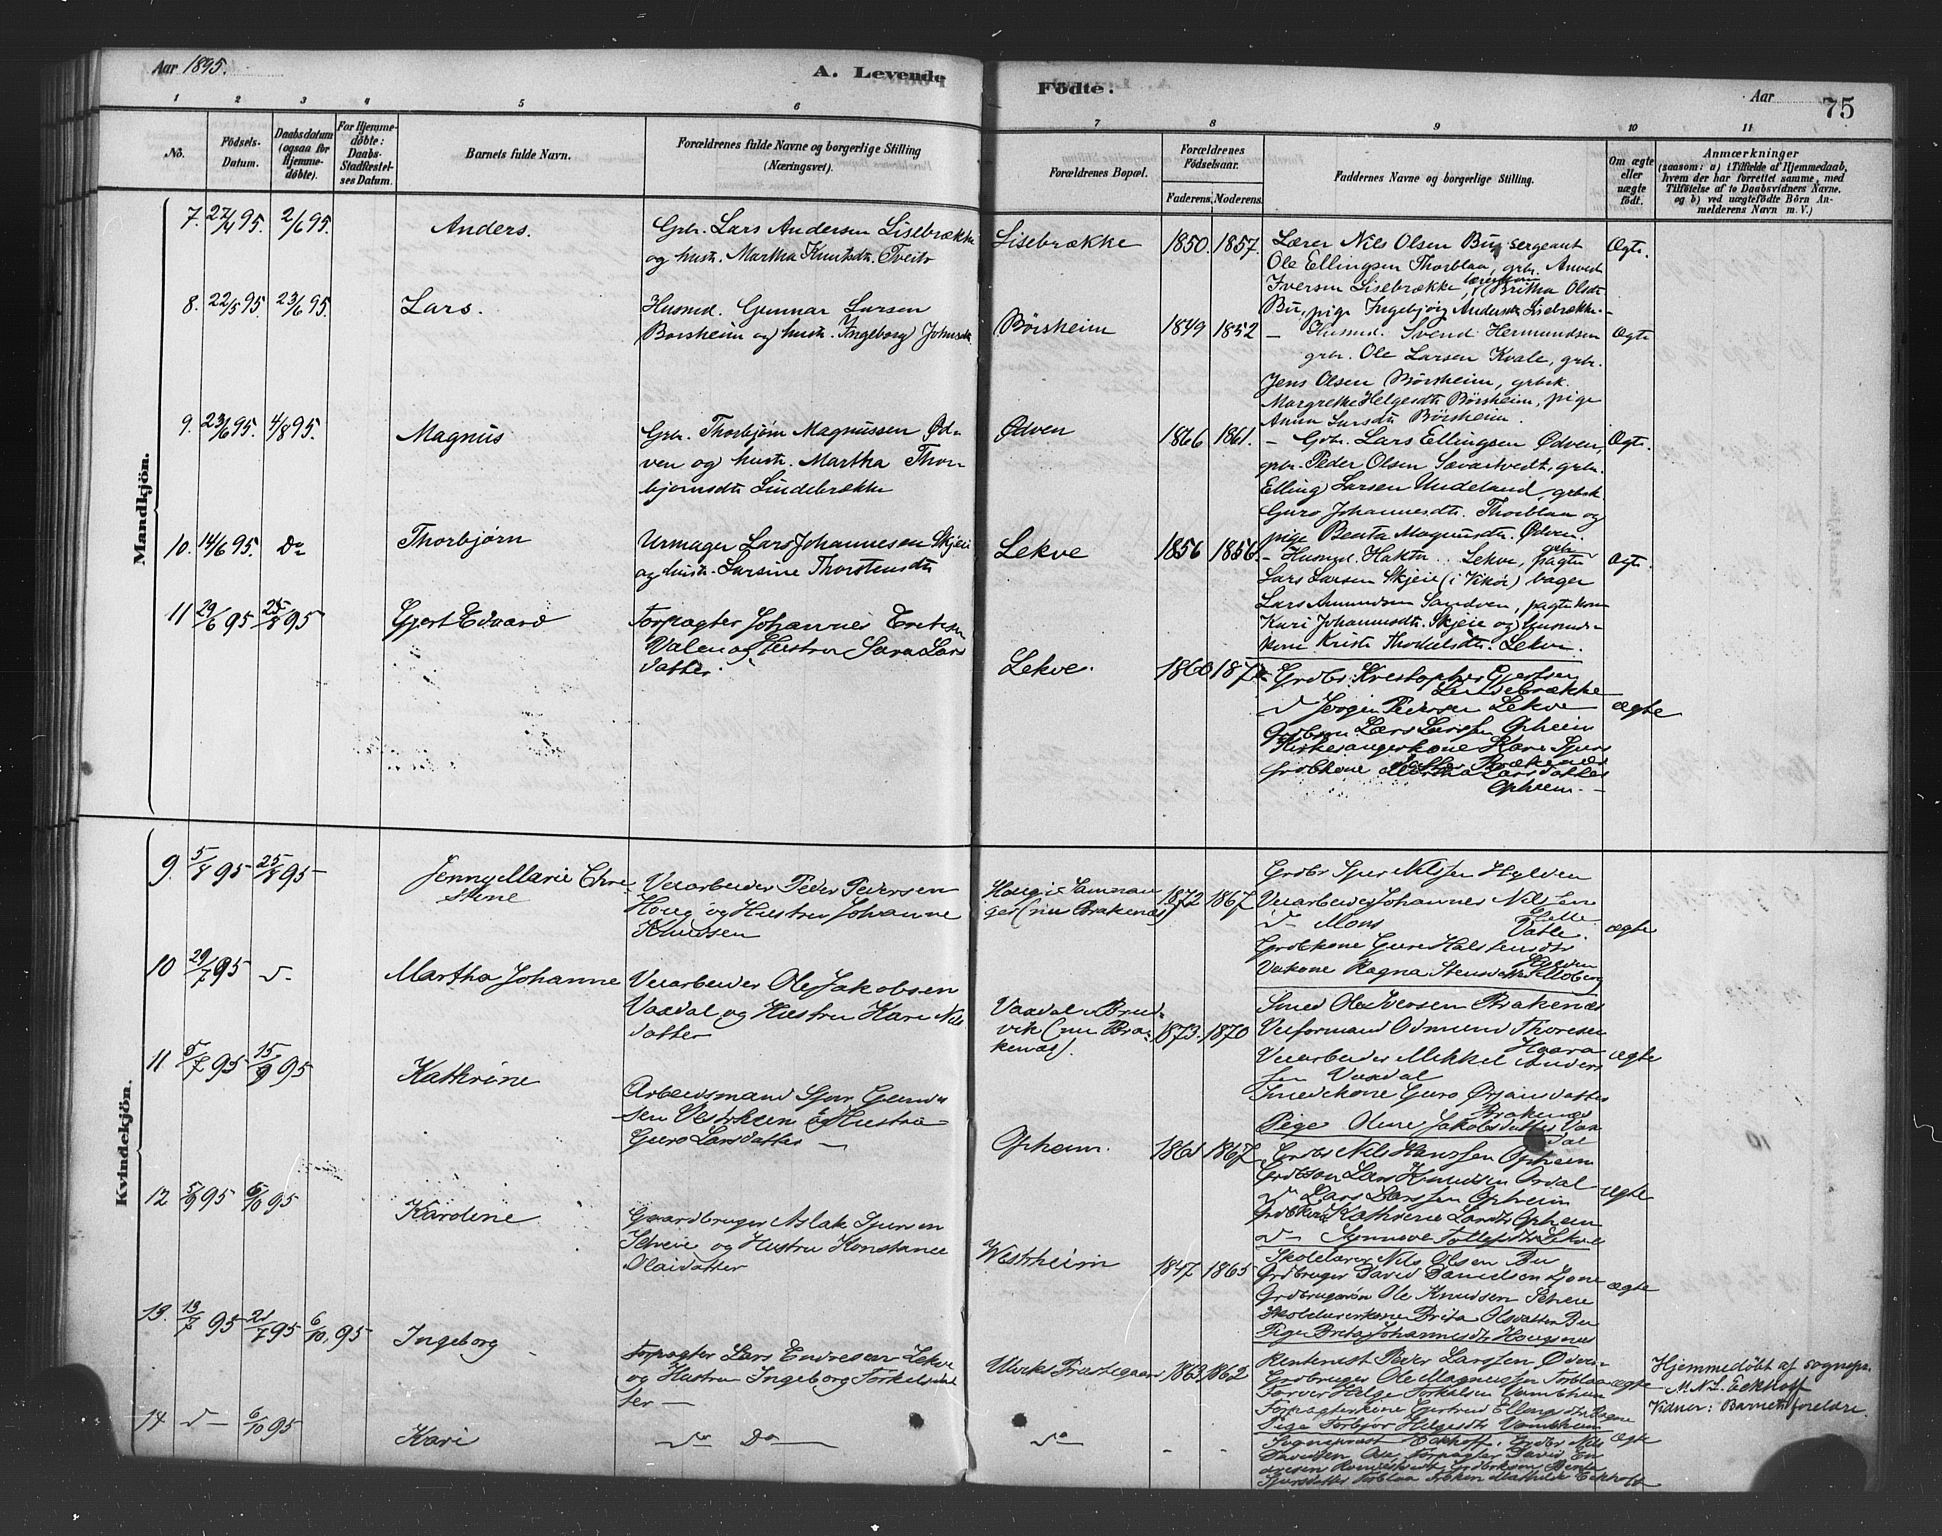 Aar 1895.
A. Levende Födte.
Aar
75
1 2 3 4 5 6 7 8 9 10 11
No.
Födsels-Datum.
Daabsdatum (ogsaa for Hjemme-döbte).
For Hjemme-döbte: Daabs-Stadfæstelses Datum.
Barnets fulde Navn.
Forældrenes fulde Navne og borgerlige Stilling (Næringsvei).
Forældrenes Bopæl.
Forældrenes Födselsaar.
Faderens.
Moderens.
Faddernes Navne og borgerlige Stilling.
Om ægte eller uægte födt.
Anmærkninger
(saasom: a) i Tilfælde af Hjemmedaab, hvem der har forrettet samme, med Tilföielse af to Daabsvidners Navne. og b) ved uægtefödte Börn Anmelderens Navn m. V.)
Mandkjön.
7. 27/4 95. 2/6 95.
Anders.
Gbr. Lars Andersen Lisebrække
og hustr. Martha Knutsdtr. Tveito
Lisebrække
1850. 1857.
Lærer Nils Olsen Bu, sergeant
Ole Ellingsen Thorblaa, gbr. Anved
Iversen Lisebrække, lærerkone Britha Olsdtr
Bu, pige Ingebjörg Andersdtr Lisebrække.
Ægte.
8. 22/5 95. 23/6 95.
Lars.
Husmd. Gunnar Larsen
Børsheim og hustr. Ingeborg Johnsdtr.
Børsheim
1849 1852
– Husmd. Svend Hermundsen
gbr. Ole Larsen Kvale, gbr.
Jens Olsen Børsheim, grbk.
Margrethe Helgesdtr Børsheim, pige
Anna Larsdtr Børsheim.
Ægte
9. 23/6 95. 4/8 95.
Magnus
Gbr. Thorbjørn Magnussen Ød-
ven og hustr. Martha Thor-
bjørnsdtr Lindebrække
Ødven
1866 1861.
– Gbr. Lars Ellingsen Ødven,
gbr. Peder Olsen Sævartvedt, gbr.
Elling Larsen Undeland, grbk
Guro Johannesdtr. Thorblaa og
pige Benta Magnusdtr. Ødven.
Ægte.
10. 14/6 95. Do
Thorbjørn
Urmager Lars Johannesen Skjeie
og hustr. Larsine Thorstensdtr
Lekve
1856 1856.
– Husmd. Lekve, gbr.
Lars Larsen Skjeie (i Vikør) bager
Lars Amundsen Sandven, pagtekone
Kari Johannesdtr. Skjeie og husmds-
kone Kristi Thorkelsdtr. Lekve.
Ægte.
11 29/6 95 25/8 95
Gjert Edvard
Forpagter Johannes Eriksen
Valen og Hustru Sara Lars
datter.
Lekve.
1860 187
Grdbr. Kristopher Gjertsen
Lindebrække
do Jørgen Pedersen Lekve
Grdbsøn Lars Larssen Opheim
Kirkesangerkone Kare Sjurs
datter Brækenæs
Grdbkone Martha Larsdatter
Opheim.
ægte
Kvindekjön.
9. 5/8 95 25/8 95
Jenny Marie Chri-
stine
Veiarbeider Peder Pedersen
Houg og Hustru Johanne
Knudsen
Houg i Samnan
ger (nu Brakenæs)
1872 1867
Grdbr Sjur Nilssen Hylden
Veiarbeider Johannes Nilssen
do Mons Vatle.
Grdbkone Guro Halstensdtr
Hylden
Veikone Ragna Stensdatter
ægte
10 29/7 95 do
Martha Johanne
Veiarbeider Ole Jakobsen
Vaxdal og Hustru Kari Nils
datter
Vaxdal i Bruvik (nu Brakenæs).
1873. 1870
Smed Ole Iversen Brakenæs
Veiformand Odmund Thoresen
Haara
Veiarbeider Mikkel Anders
sen Vaxdal
Smedekone Guro Ørjansdatter
Brakenæs
Pige Oline Jakobsdatter Vax
dal
ægte
11 5/7 95 15/9 95
Kathrine
Arbeidsmand Sjur Gunds
sen Vestrheim og Hustru
Guro Larsdatter –
Opheim.
1861 1867
Grdbr Nils Hanssen Opheim
Grdbsøn Lars Knudsen Ordal
do Lars Larssen Opheim
Grdbkone Kathrine Larsdtr Opheim
do Synneve Tollefsdtr Lekve
ægte
12 5/9 95 6/10 95
Karoline
Gaardbruger Aslak Sjursen
Scheie og Hustru Konstance
Olaidatter
Westrheim
1847 1865
Skolelærer Nils Olsen Bu
Grdbruger David Danielsen Lione
Grdbrugersøn Ole Knudsen Scheie
Skolelærerkone Brita Olsdatter Bu
Pige Brita Johannesdtr Hougsnæs
ægte
13. 13/7 95 21/7 95 6/10 95
Ingeborg
Forpagter Lars Endresen Lekve
og Hustru Ingeborg Torkelsdat
ter –
Ulviks Præstegaard
1863 1862
Rentenist Peder Larssen Ødven
Grdbruger Ole Magnussen Torblaa
Farver Helge Torkelsen Vambheim
Forpagterkone Gertrud Ellingsdtr
Pige Torbjør Helgesdtr Vambheim
ægte
Hjemmedøbt af sognepr.
M. N. L. Eckhoff
Vidner: Barnets forældre.
14 do 6/10 95
Kari
do Do
do
– –
Sognepræst Eckhoff, Grdbr Nils
Davidsen Aas, forpagter David En-
dresen
Sjursdatter Torblaa, frøken Mathilde Eckhoff
Ægte